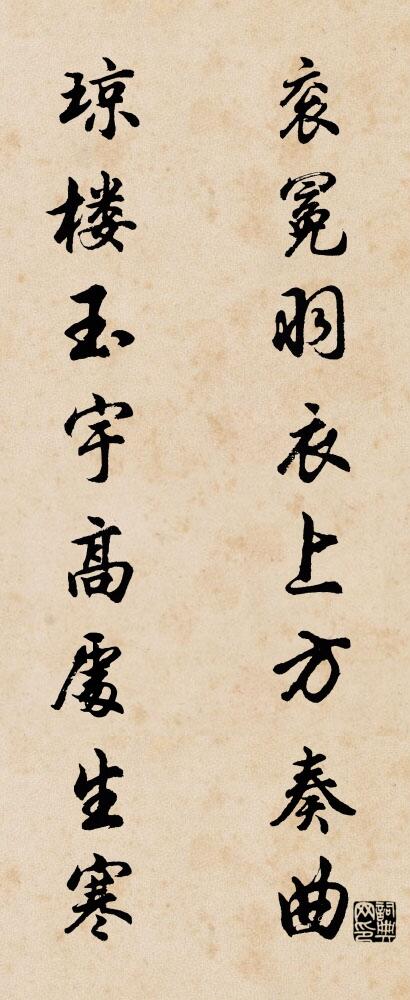 衮冕羽衣上方奏曲
琼楼玉宇高處生寒
詞典网印